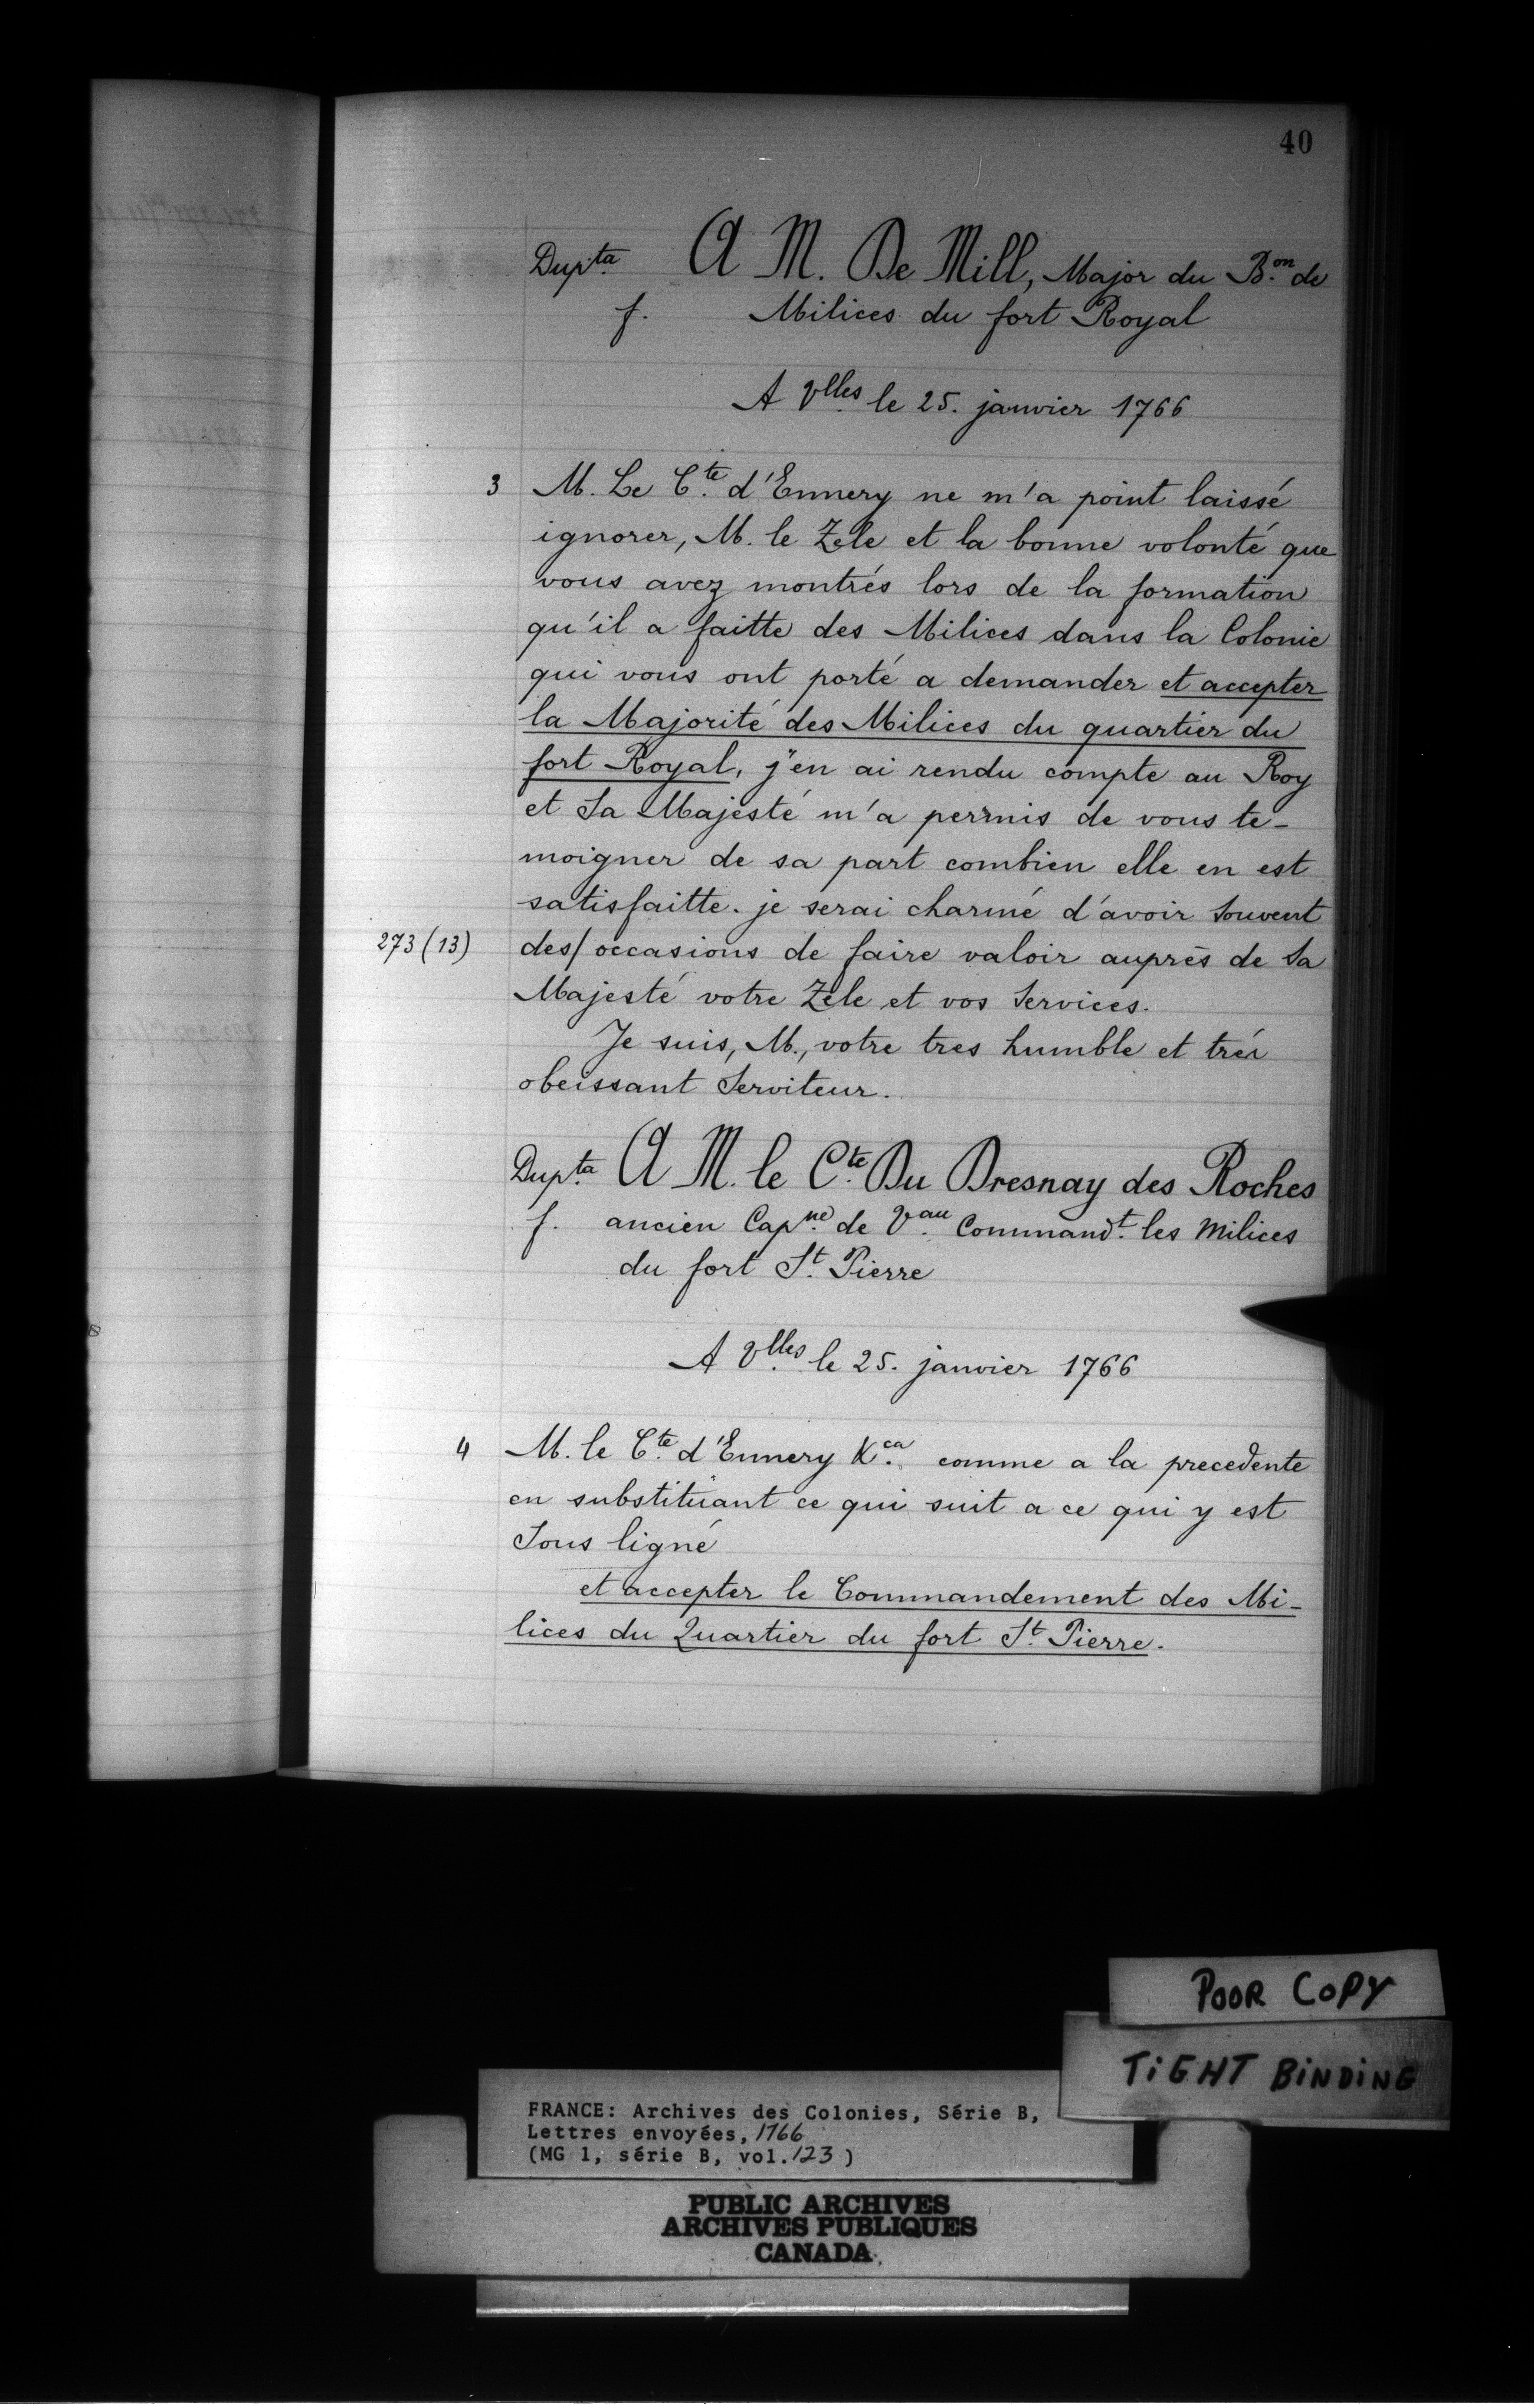 40
Dup.ta A M. De Mill, Major du B.on de
f. Milices du fort Royal
A Vlles le 25. janvier 1766
3 M. Le C.te d'Ennery ne m'a point laissé
ignorer, M. le Zele et la bonne volonté que
vous avez montrés lors de la formation
qu'il a faitte des Milices dans la Colonie
qui vous ont porté a demander et accepter
la Majorité des Milices du quartier du
fort Royal, j'en ai rendu compte au Roy
et Sa Majesté m'a permis de vous te-
moigner de sa part combien elle en est
satisfaitte. je serai charmé d'avoir Souvent
273 (13) des/occasions de faire valoir auprès de Sa
Majesté votre Zele et vos Services.
Je suis, M., votre tres humble et trés
obeissant Serviteur.
Dup.ta A M. le C.te Du Dresnay des Roches
f. ancien Cap.ne de V.au Command.t les Milices
du fort S.t Pierre
A V.lles le 25. janvier 1766
4 M. le C.te d'Ennery &.ca comme a la precedente
en substituant ce qui suit a ce qui y est
Sous ligné
et accepter le Commandement des Mi-
lices du Quartier du fort S.t Pierre.
POOR COPY
TIGHT BINDING
FRANCE: Archives des Colonies, Série B,
Lettres envoyées, 1766
(MG 1, série B, vol. 123)
PUBLIC ARCHIVES
ARCHIVES PUBLIQUES
CANADA